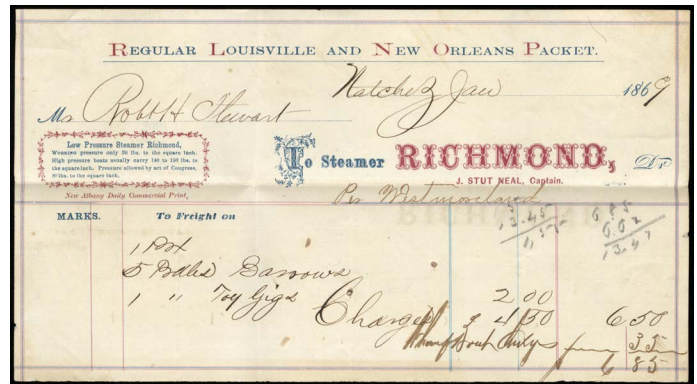 REGULAR LOUISVILLE AND NEW ORLEANS PACKET.
Natchez Jan 1869
Mr Robt H Stewart
Low Pressure Steamer Richmond,
WORKING pressure only 50 lbs. to the square inch.
High pressure boats usually carry 140 to 150 lbs. to
the square inch. Pressure allowed by act of Congress,
lbs. to the square inch.
New Albany Daily Commercial Print,
To Steamer RICHMOND, Dr
J. STUT NEAL, Captain.
Per Westmoreland
MARKS. To Freight on
1 Box
5 Bales Barrows
1 " Toy Gigs 2 00
Charges 4 50 6 50
35
6 85
6 85
6.62
13.47